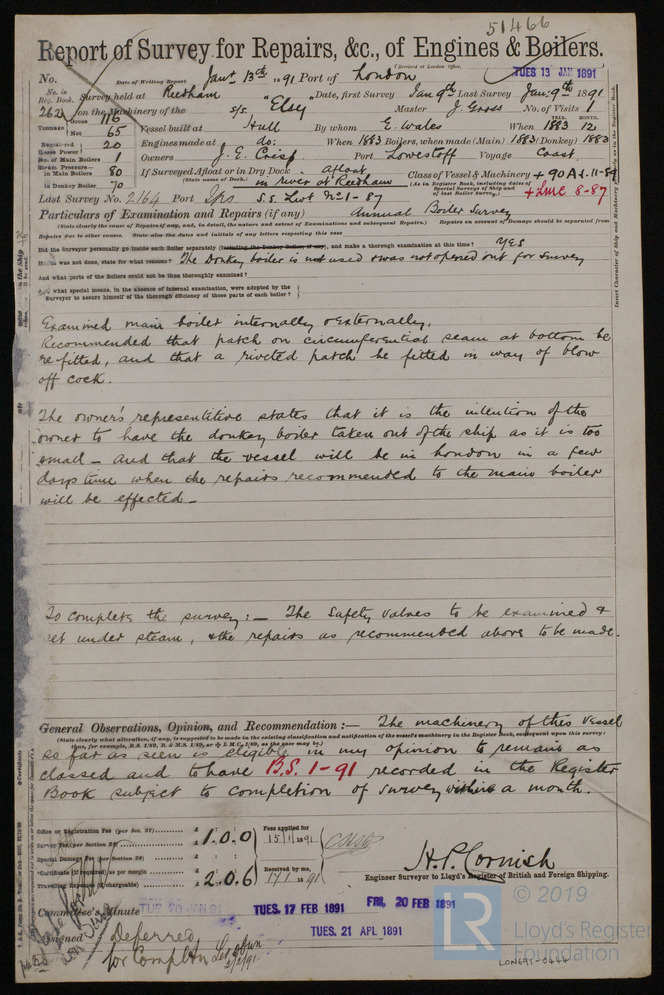 51466
Report of Survey for Repairs, &c., of Engines & Boilers.
(Received at London Office,
TUES 13 JAN 1891
No. Date of Writing Report Jany 13th 1891 Port of London
No. in Reg. Book. Survey held at Reedham Date, first Survey Jan 9th Last Survey Jan: 9th 1891
262 on the Machinery of the s/s. "Elsy" Master J. Gross No. of Visits 1
Tonnage Gross 116 Net 65 Vessel built at Hull By whom E. Wales When YEAR. 1883 MONTH. 12
Registered Horse Power 20 Engines made at do: When 1883 Boilers, when made (Main) 1883 (Donkey) 1883
No. of Main Boilers 1 Owners J. E. Crisp Port Lowestoft Voyage Coast
Steam Pressure in Main Boilers 80 If Surveyed Afloat or in Dry Dock Afloat Class of Vessel & Machinery +90A1.11-89
in Donkey Boiler 70 (State name of Dock.) in river at Reedham (As in Register Book, including dates of Special Surveys of Ship and of last Boiler Survey.) +LMC 8-87
Last Survey No. 2164 Port Ips S.S. Lwt No1-87
Particulars of Examination and Repairs (if any) Annual Boiler Survey
(State clearly the cause of Repairs if any, and, in detail, the nature and extent of Examinations and subsequent Repairs.) Repairs on account of Damage should be separated from
Repairs due to other causes. State also the dates and initials of any letters respecting this case
Did the Surveyor personally go inside each Boiler separately (including the Donkey Boiler, if any), and make a thorough examination at this time? YES
If was not done, state for what reasons? The Donkey boiler is not used & was not opened out for survey
And what parts of the Boilers could not be thus thoroughly examined?
what special means, in the absence of internal examination, were adopted by the
Surveyor to assure himself of the thorough efficiency of those parts of each boiler?
Examined main boiler internally & externally.
Recommended that patch on circumferential seam at bottom be
re fitted, and that a riveted patch be fitted in way of blow
off cock.
The owner's representitive states that it is the intention of the
owner to have the donkey boiler taken out of the ship as it is too
small – and that the vessel will be in London in a few
days time when the repairs recommended to the main boiler
will be effected –
To complete the survey:– The Safety Valves to be examined &
set under steam, & the repairs as recommended above to be made.
General Observations, Opinion, and Recommendation:— The machinery of this vessel
(State clearly what alteration, if any, is suggested to be made in the existing classification and notification of the vessel's machinery in the Register Book, consequent upon this survey:
thus, for example, B.S. 1/89, B. & M.S. 1/89, or L.M.C. 1/89, as the case may be.)
so far as seen is eligible in my opinion to remain as
classed and to have B.S. 1-91 recorded in the Register
Book subject to completion of survey within a month.
Office or Registration Fee (per Sec. 27) £ 1.0.0 Fees applied for 15/1/1891
Survey Fee (per Section 28) £
Special Damage Fee (per Section 28) £
Certificate (if required) as per margin Received by me,
Travelling Expenses (if chargeable) £ 2.0.6 1891
H.P. Cornish
Engineer Surveyor to Lloyd's Register of British and Foreign Shipping.
Committee's Minute TUE 20 JAN 91 TUES. 17 FEB 1891 FRI. 20 FEB 1891
TUES. 21 APL 1891
Assigned Deferred
for Compltn
Insert Character of Ship and Machinery precisely as in the Register Book.
© 2019
LR
Lloyd's Register
Foundation
LON691-0444